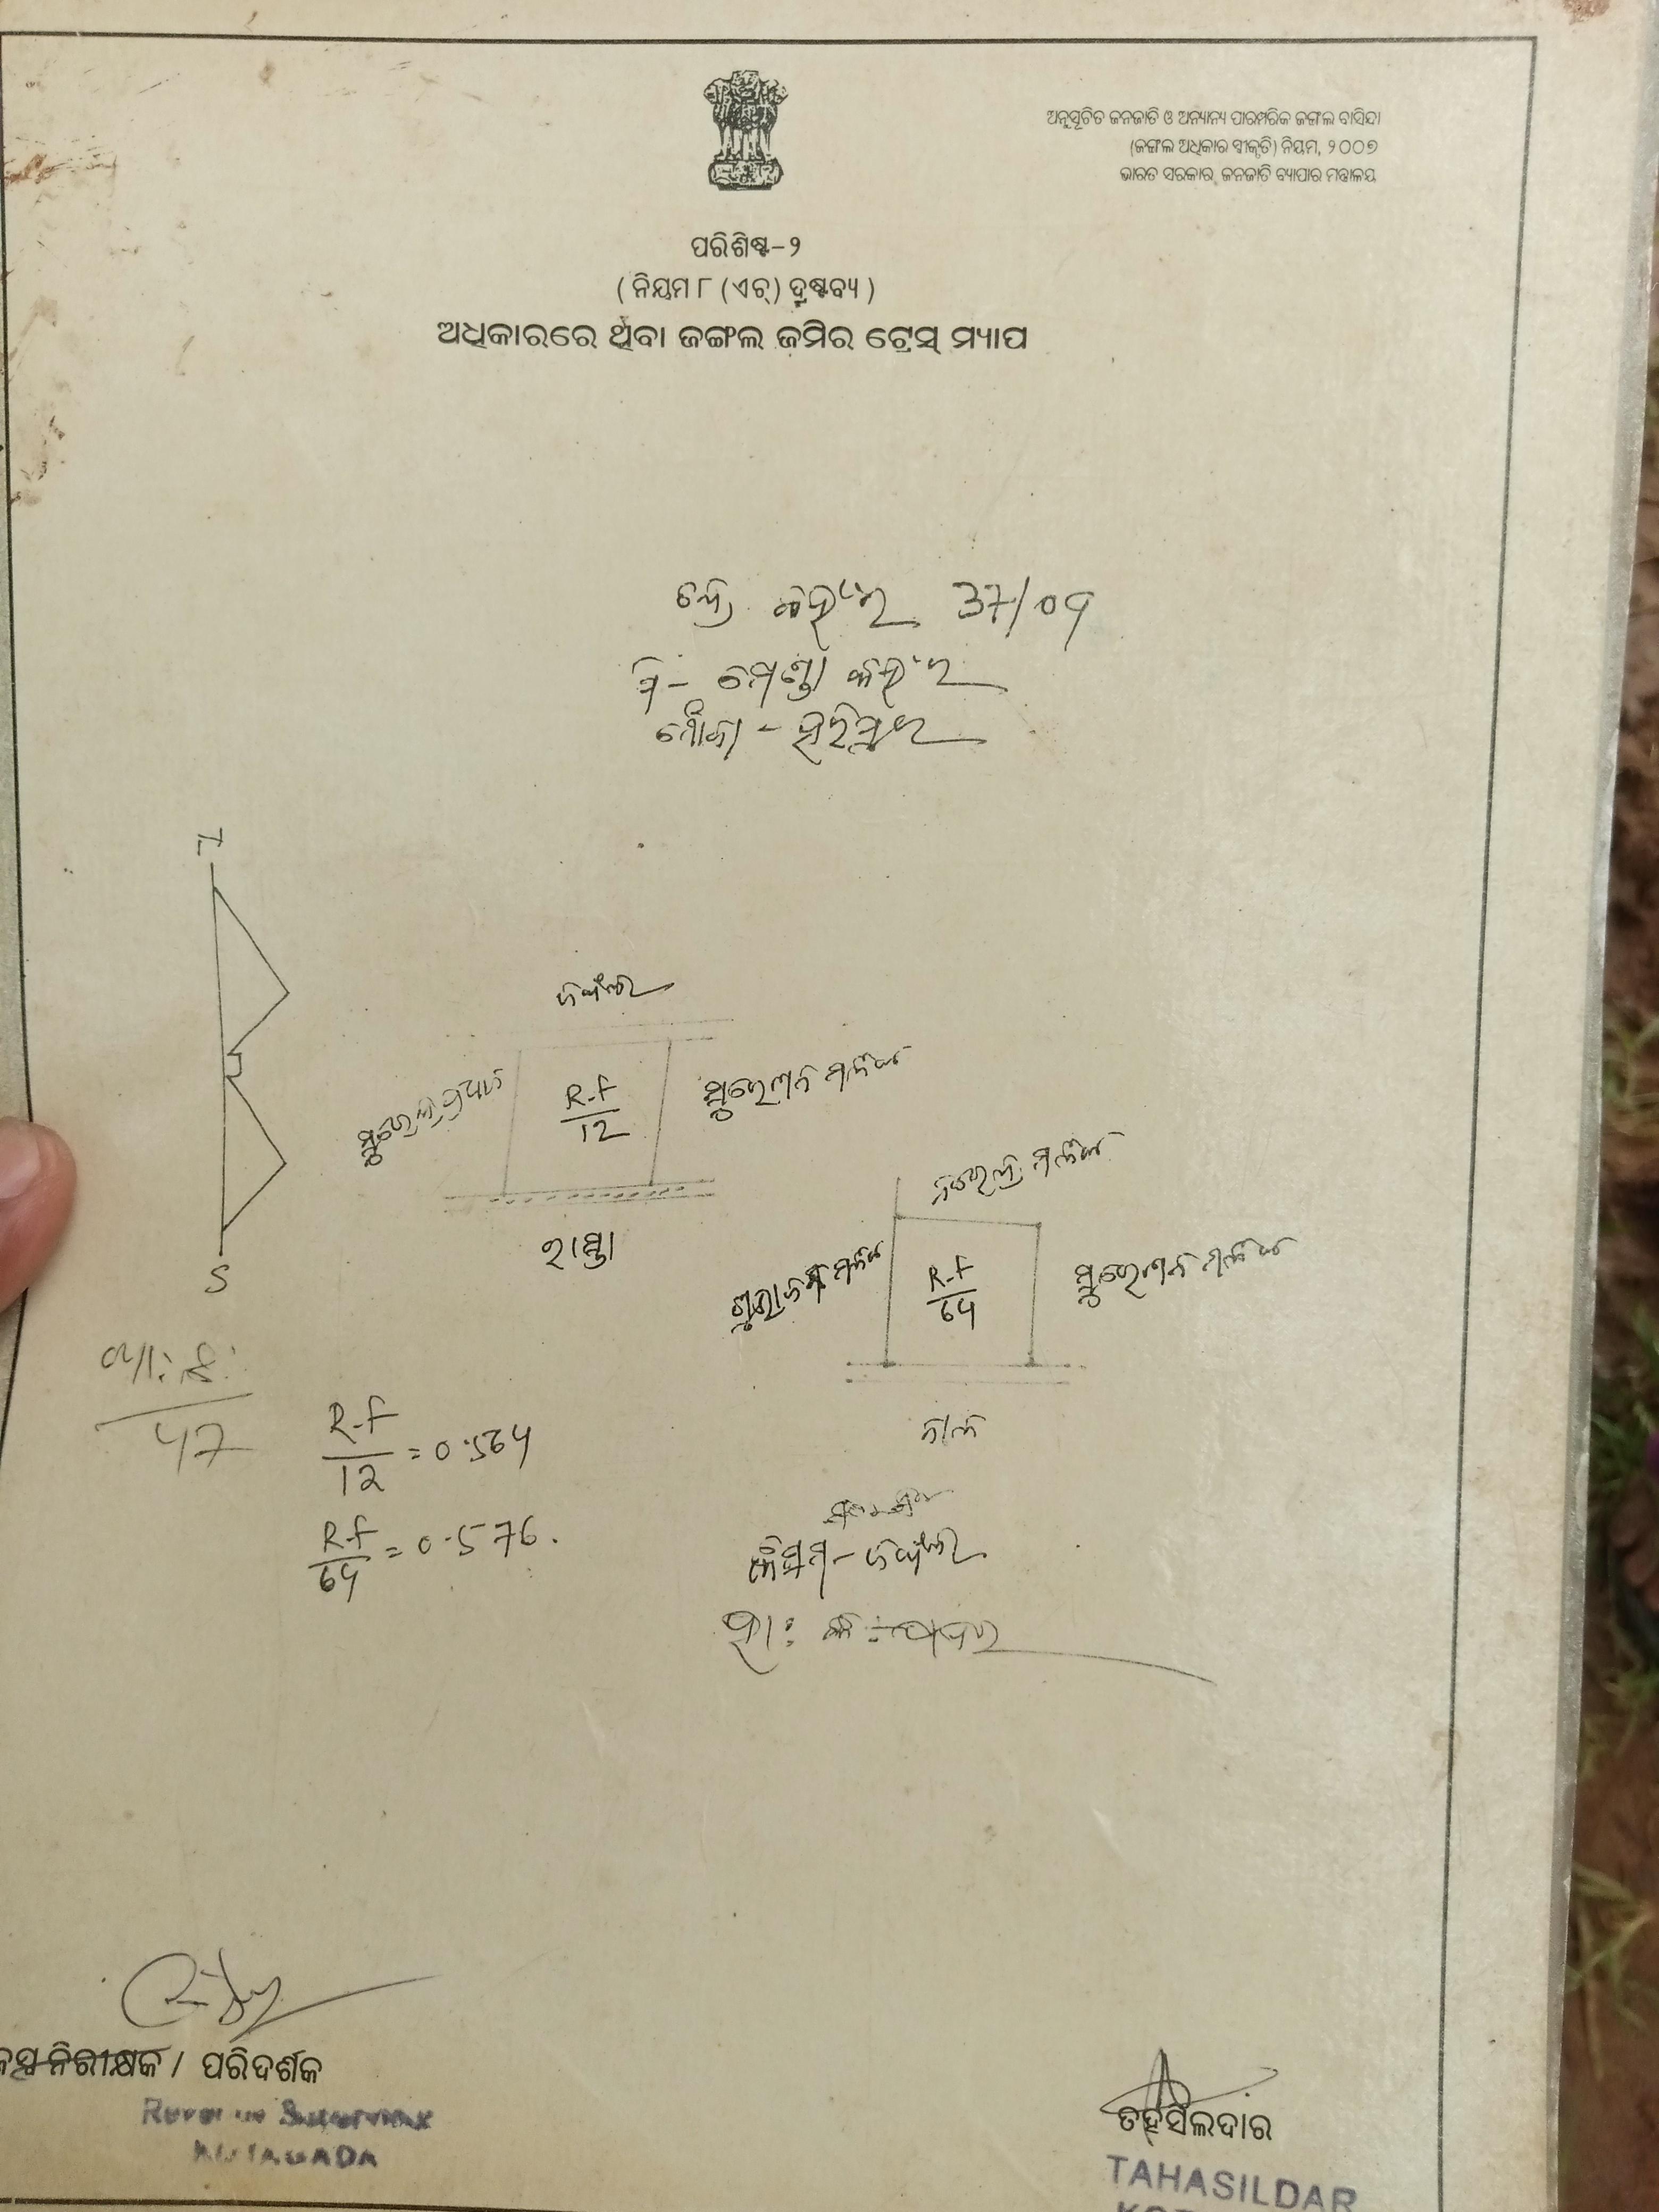 ଅନୁସୂଚିତ ଜନଜାତି ଓ ଅନ୍ୟାନ୍ୟ ପାରମ୍ପରିକ ଜଙ୍ଗଲ ବାସିନ୍ଦା
(ଜଙ୍ଗଲ ଅଧିକାର ସ୍ୱୀକୃତି) ନିୟମ, ୨୦୦୭
ଭାରତ ସରକାର, ଜନଜାତି ବ୍ୟାପାର ମନ୍ତ୍ରାଳୟ
ପରିଶିଷ୍ଟ-୨
(ନିୟମ ୮ (ଏଚ୍) ଦ୍ରଷ୍ଟବ୍ୟ)
ଅଧିକାରରେ ଥିବା ଜଙ୍ଗଲ ଜମିର ଟ୍ରେସ୍ ମ୍ୟାପ
କହଁର 37/09
ପି- ମେଣ୍ଡା କହଁର
ମୌଜା - ହରିପୁର
N
ଜଙ୍ଗଲ
ସୁରେନ୍ଦ୍ର ପ୍ରଧାନ
R-F
12
ମଳିକ
ରାସ୍ତା
ନରେନ୍ଦ୍ର ମଳିକ
ମଳିକ
R-F
64
ମଳିକ
S
ନାଳ
47
R-F
12 = 0.564
R-F
64 = 0.576.
କିସମ - ଜଙ୍ଗଲ
ନିରୀକ୍ଷକ / ପରିଦର୍ଶକ
Revenue Supervisor
KOTAGADA
ତହସିଲଦାର
TAHASILDAR